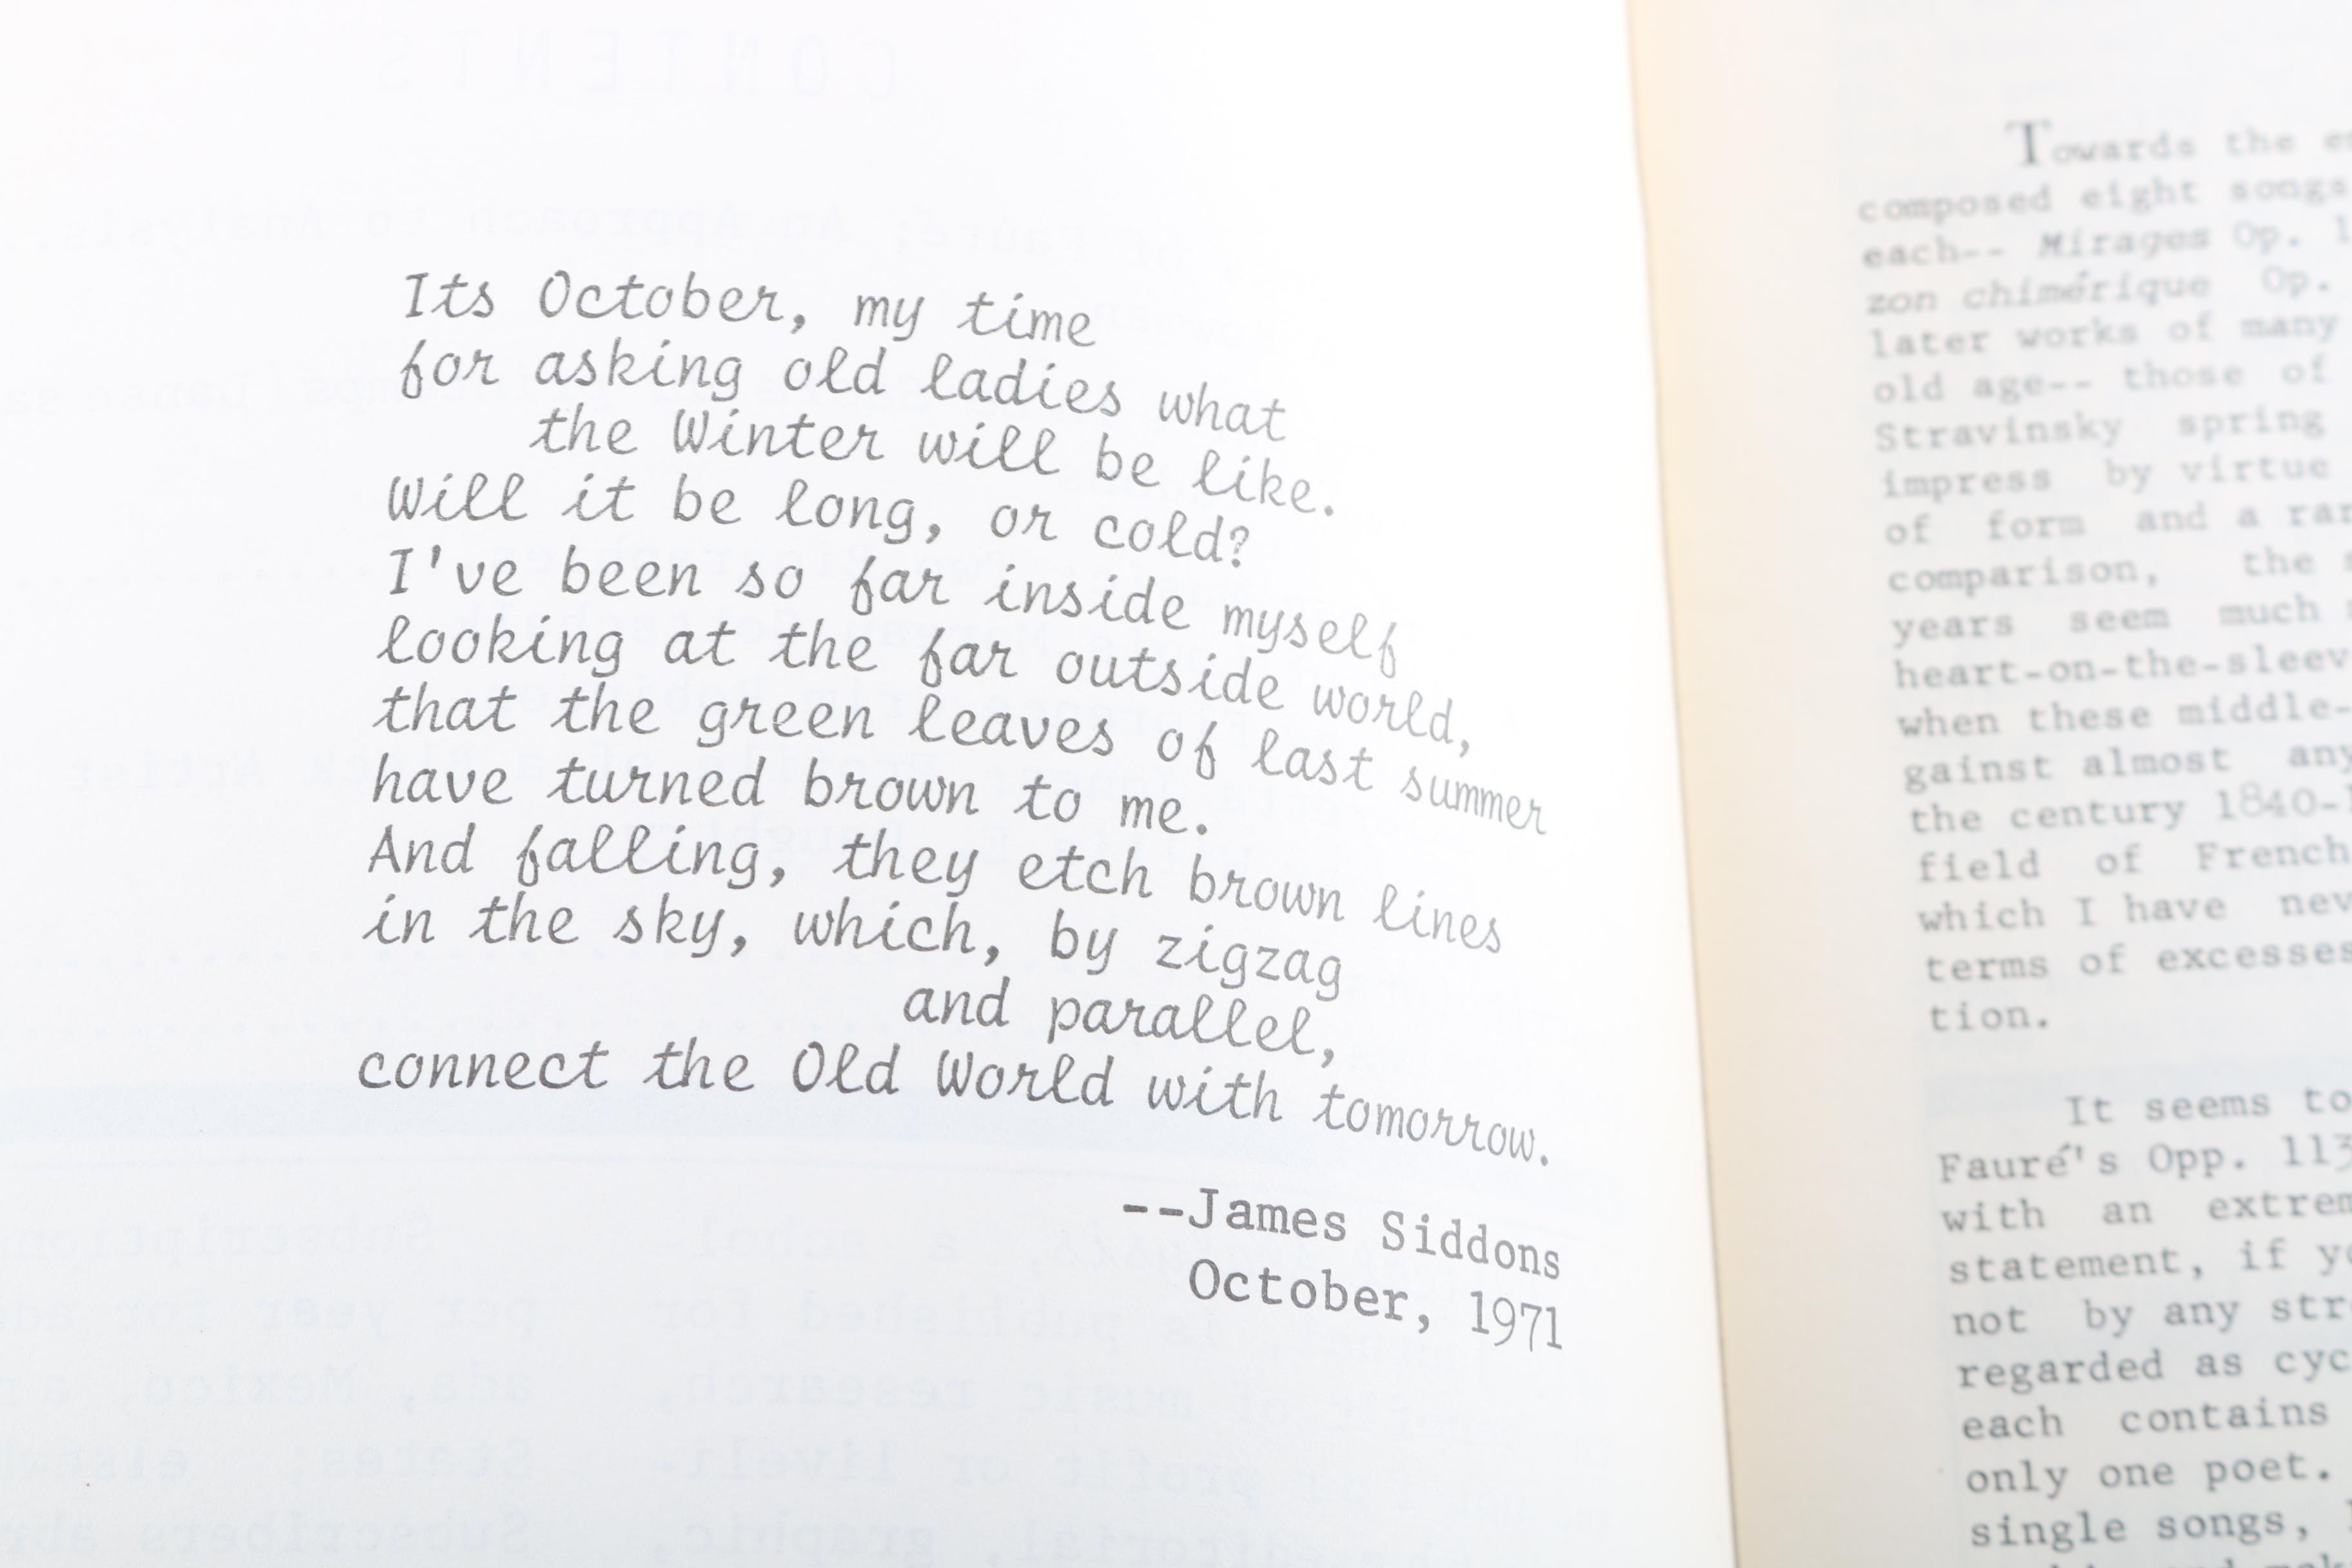 Its October, my time
for asking old ladies what
the Winter will be like.
Will it be long, or cold?
I've been so far inside myself
looking at the far outside world,
that the green leaves of last summer
have turned brown to me.
And falling, they etch brown lines
in the sky, which, by zigzag
and parallel,
connect the Old World with tomorrow.
--James Siddons
October, 1971
Towards the
composed eight songs
each-- Mirages Op.
zon chimérique Op.
later works of many
old age-- those of
Stravinsky spring
impress by virtue
of form and a
comparison, the
years seem much
heart-on-the-sleev
when these middle-
gainst almost any
the century 1840-
field of French
which I have nev
terms of excesses
tion.
It seems to
Fauré's Opp. 113
with an extrem
statement, if
not by any str
regarded as cyc
each contains
only one poet.
single songs,